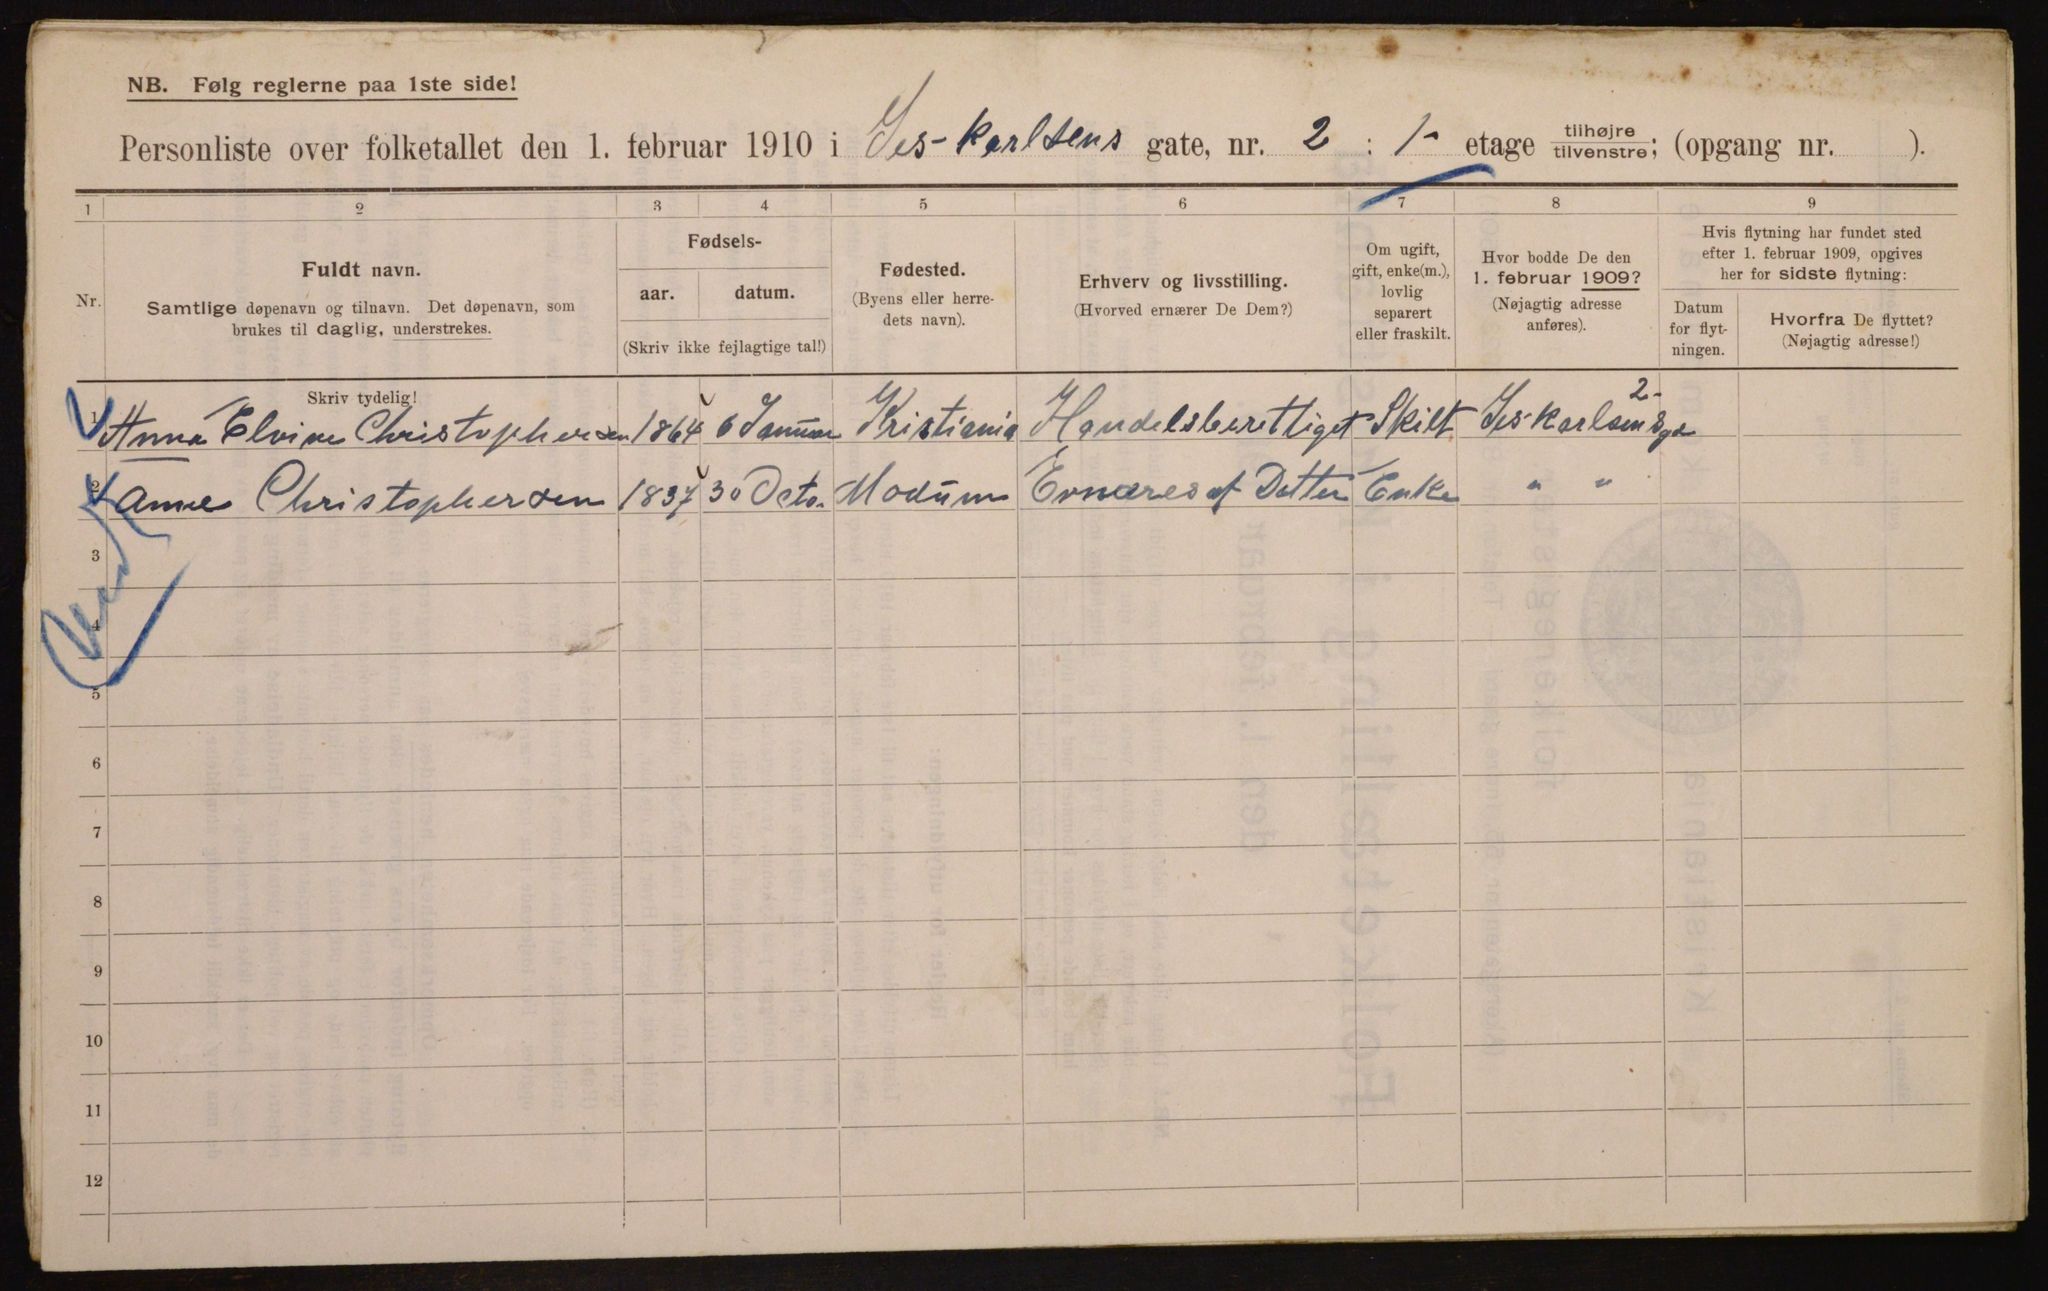 NB. Følg reglerne paa 1ste side!
Personliste over folketallet den 1. februar 1910 i Jes-Karlsens gate, nr. 2 : 1- etage tilhøjre tilvenstre; (opgang nr. ).
1 2 3 4 5 6 7 8 9
Nr.
Fuldt navn.
Samtlige døpenavn og tilnavn. Det døpenavn, som
brukes til daglig, understrekes.
Fødsels-
aar. datum.
(Skriv ikke fejlagtige tal!)
Fødested.
(Byens eller herre-
dets navn).
Erhverv og livsstilling.
(Hvorved ernærer De Dem?)
Om ugift,
gift, enke(m.),
lovlig
separert
eller fraskilt.
Hvor bodde De den
1. februar 1909?
(Nøjagtig adresse
anføres).
Hvis flytning har fundet sted
efter 1. februar 1909, opgives
her for sidste flytning:
Datum
for flyt-
ningen.
Hvorfra De flyttet?
(Nøjagtig adresse!)
Skriv tydelig!
1 Anna Elvine Christophersen 1864 6 Januar Kristiania Handelsberettiget Skilt Jes Karlsensga 2-
2 Anne Christophersen 1837 30 Octo. Modum Ernæres af Datter Enke " "
3
4
5
6
7
8
9
10
11
12